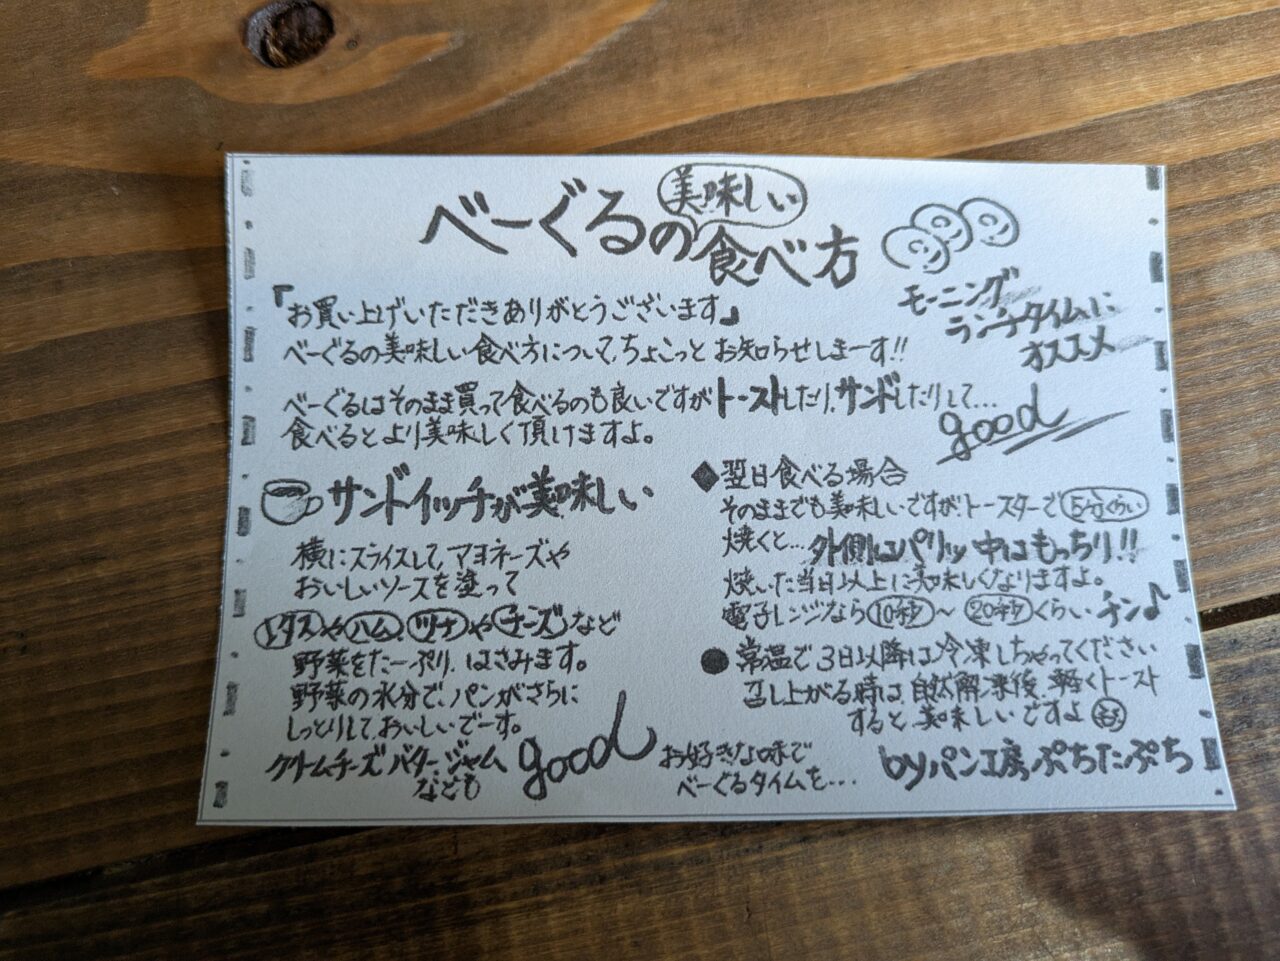 べーぐるの美味しい食べ方
モーニング
ランチタイムに
オススメ
『お買い上げいただきありがとうございます』
べーぐるの美味しい食べ方について、ちょこっとお知らせしまーす!!
べーぐるはそのまま買って食べるのも良いですがトーストしたり、サンドしたりして…
食べるとより美味しく頂けますよ。
good
サンドイッチが美味しい
横にスライスして、マヨネーズや
おいしいソースを塗って
レタスやハム、ツナやチーズなど
野菜をたーぷり、はさみます。
野菜の水分で、パンがさらに
しっとりして、おいしいでーす。
クリームチーズ バター、ジャム
なども
good
◆翌日食べる場合
そのままでも美味しいですがトースターで5分くらい
焼くと…外側はパリッ 中はもっちり!!
焼いた当日以上に美味しくなりますよ。
電子レンジなら10秒〜20秒くらいチン♪
●常温で3日以降は冷凍しちゃってください
召し上がる時は、自然解凍後、軽くトースト
すると、美味しいですよ
お好きな味で
べーぐるタイムを…
byパン工房ぷちたぷち